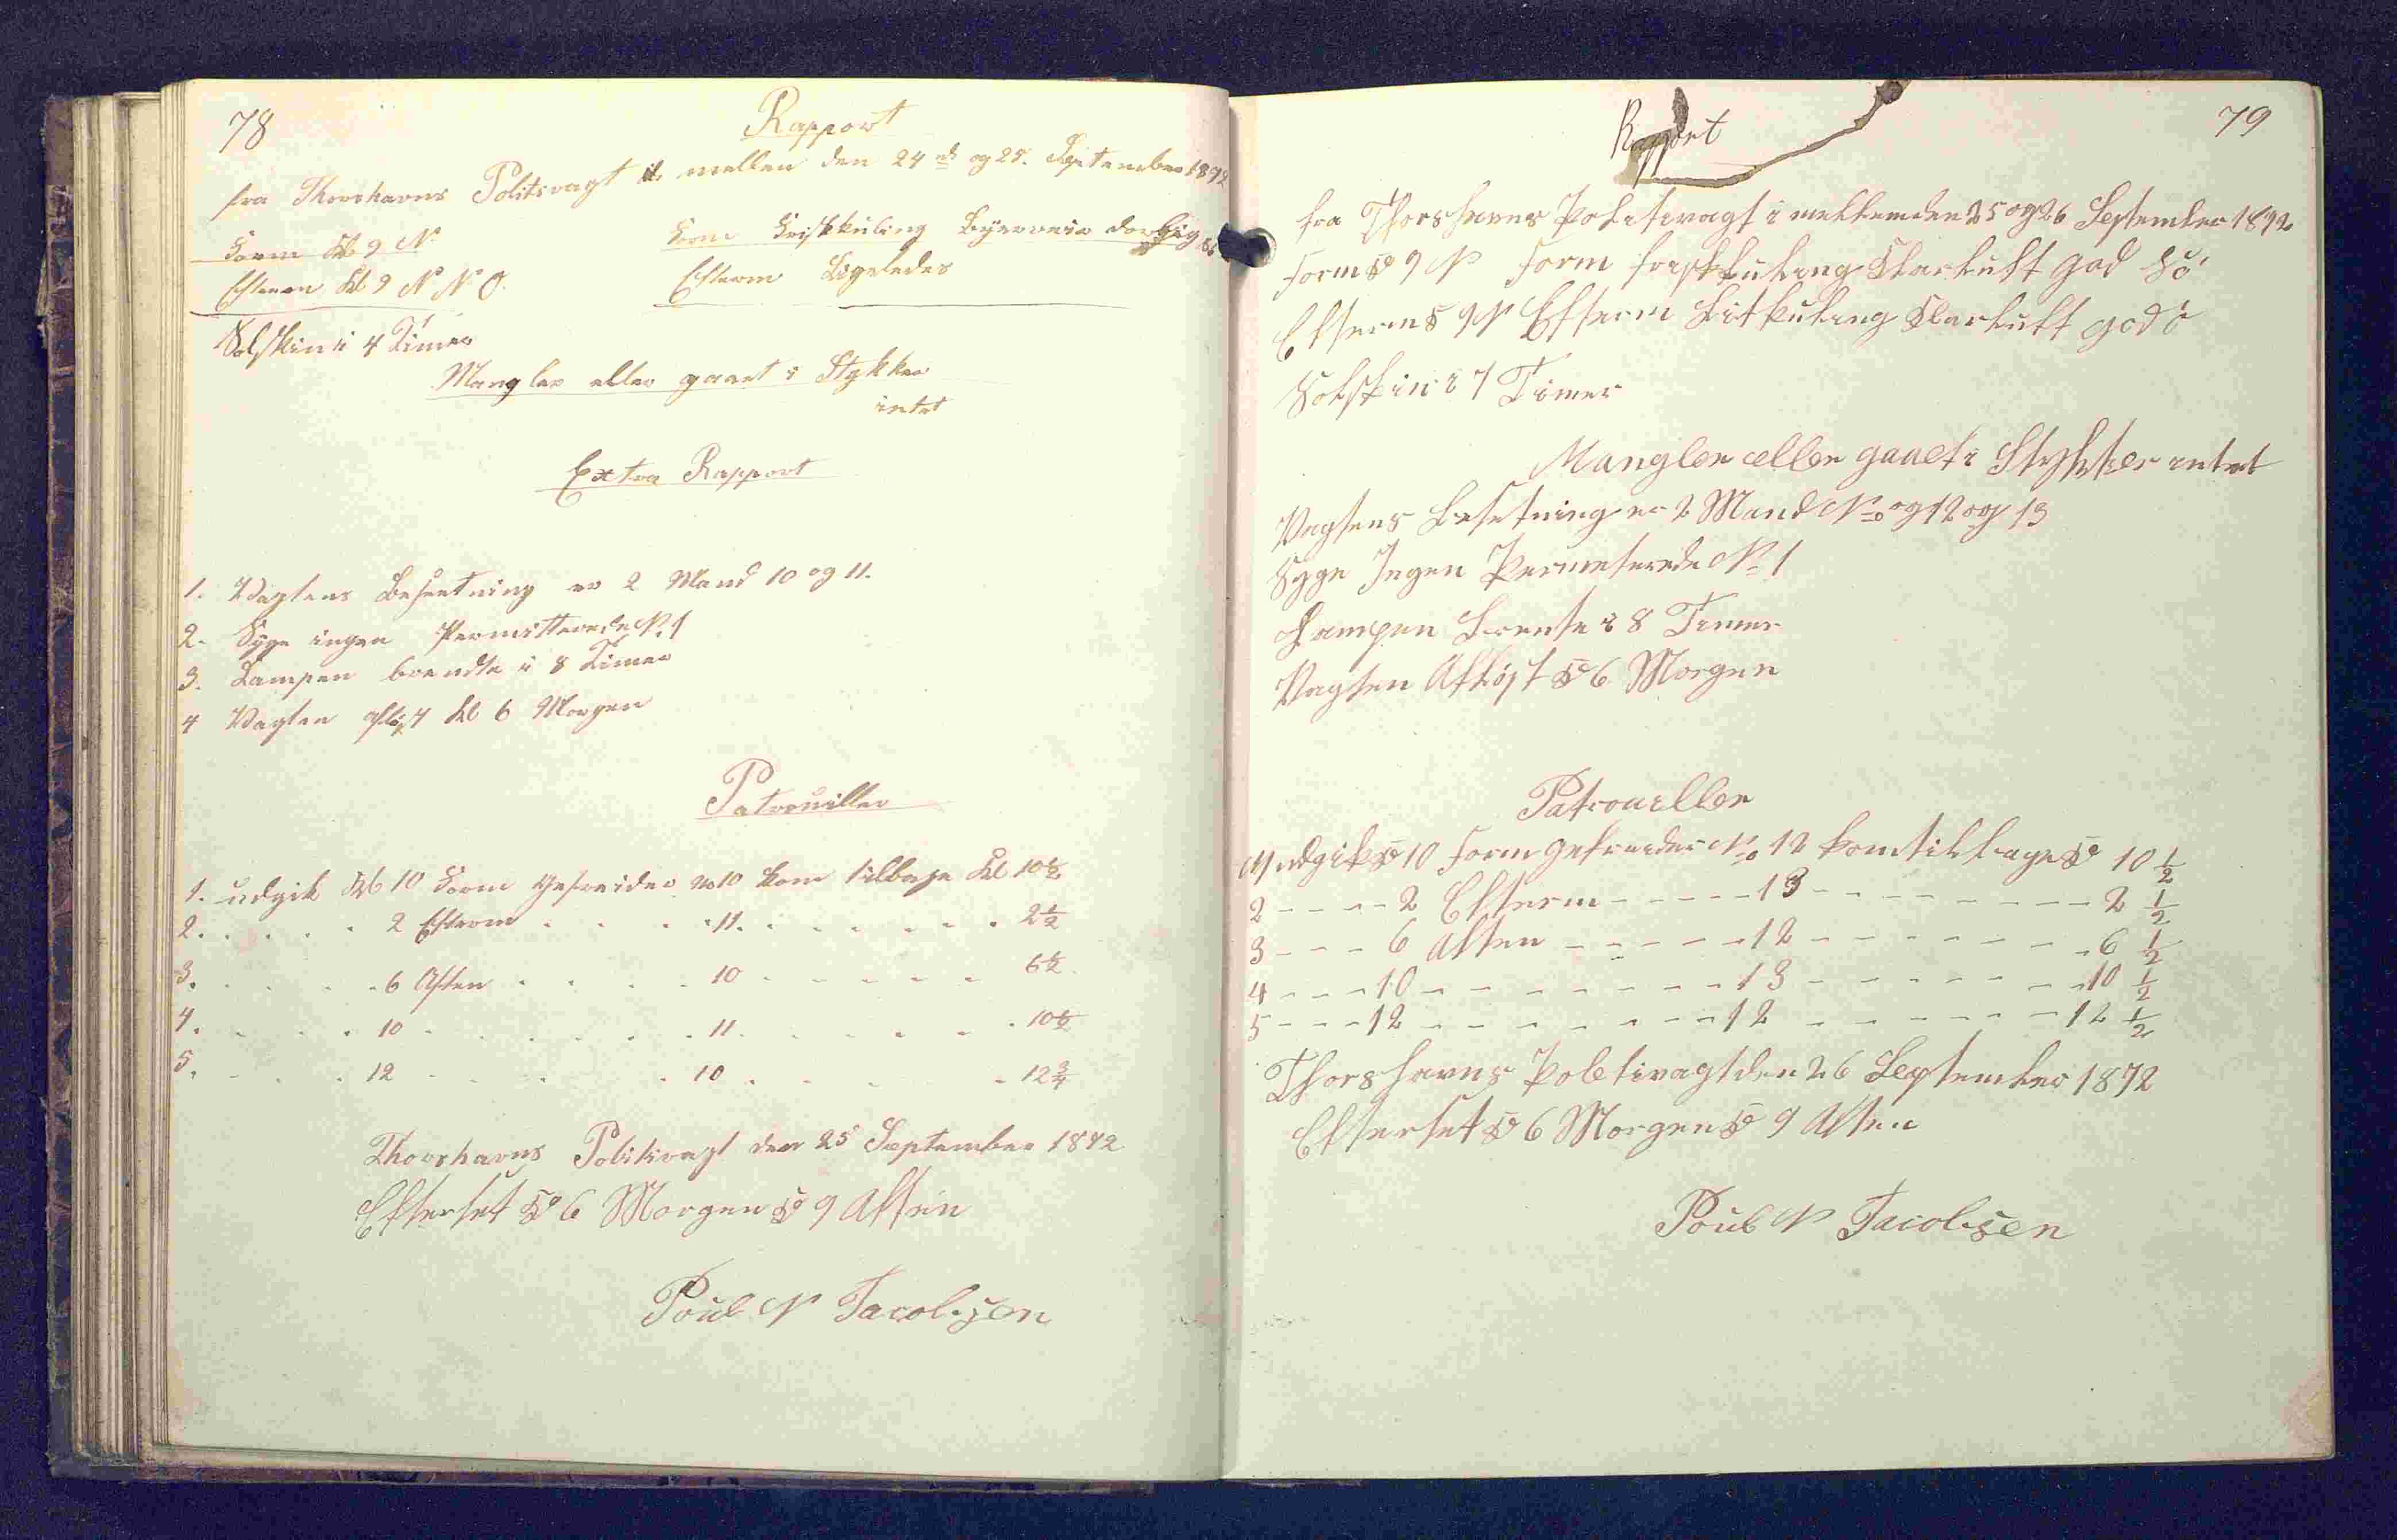 78
Rapport
fra Thorshavns Politivagt i mellem den 24de og 25. September 1872
Form Kl 9 N. Form Friskkuling Byerveir daarlig Sö
Efterm Kl 9 N N O. Efterm Ligeledes
Solskin i 4 Timer
Mangler eller gaaet i Stykker
intet
Extra Rapport
1. Vagtens Besætning er 2 Mand 10 og 11.
2. Syge ingen Permitterede No 1
3. Lampen brendte i 8 Timer
4 Vagten afløst Kl 6 Morgen
Patrouiller
1. udgik Kl 10 Form Gefreider No 10 kom tilbage Kl 10 1/2
2. . . . . 2 Efterm . . . 11. . . . . . . 2 1/2
3. . . . . 6 Aften . . . . 10 . . . . . 6 1/2
4. . . . 10 . . . . . . 11. . . . . . 10 1/2
5. . . . 12 . . . . 10 . . . . 12 3/4
Thorshavns Politivagt den 25 September 1872
Efterset Kl 6 Morgen Kl 9 Aften
Poul N Jacobsen
79
Rapport
fra Thorshavns Politivagt i mellem den 25 og 26 September 1872
Form Kl 9 N Form friskkuling Klarluft god Sö
Efterm Kl 9 N Efterm Litkuling Klarluft god
Solskin i 7 Timer
Mangler eller gaaet i Stykker intet
Vagtens Besetning er 2 Mand No og 12 og 13
Syge Ingen Permeterede No 1
Lampen Brente i 8 Timer
Vagten Afløst Kl 6 Morgen
Patrouiller
1 udgik Kl 10 Form gefreider No 12 kom tilbage Kl 10 1/2
2 - - - - 2 Efterm - - - - - 13 - - - - - - - - - 2 1/2
3 - - - 6 Aften - - - - - 12 - - - - - - - 6 1/2
4 - - - 10 - - - - - - - - 13 - - - - - - - 10 1/2
5 - - - 12 - - - - - - - 12 - - - - - - 12 1/2
Thorshavns Poletivagt den 26 September 1872
Efterset Kl 6 Morgen Kl 9 Aften
Poul N Jacobsen